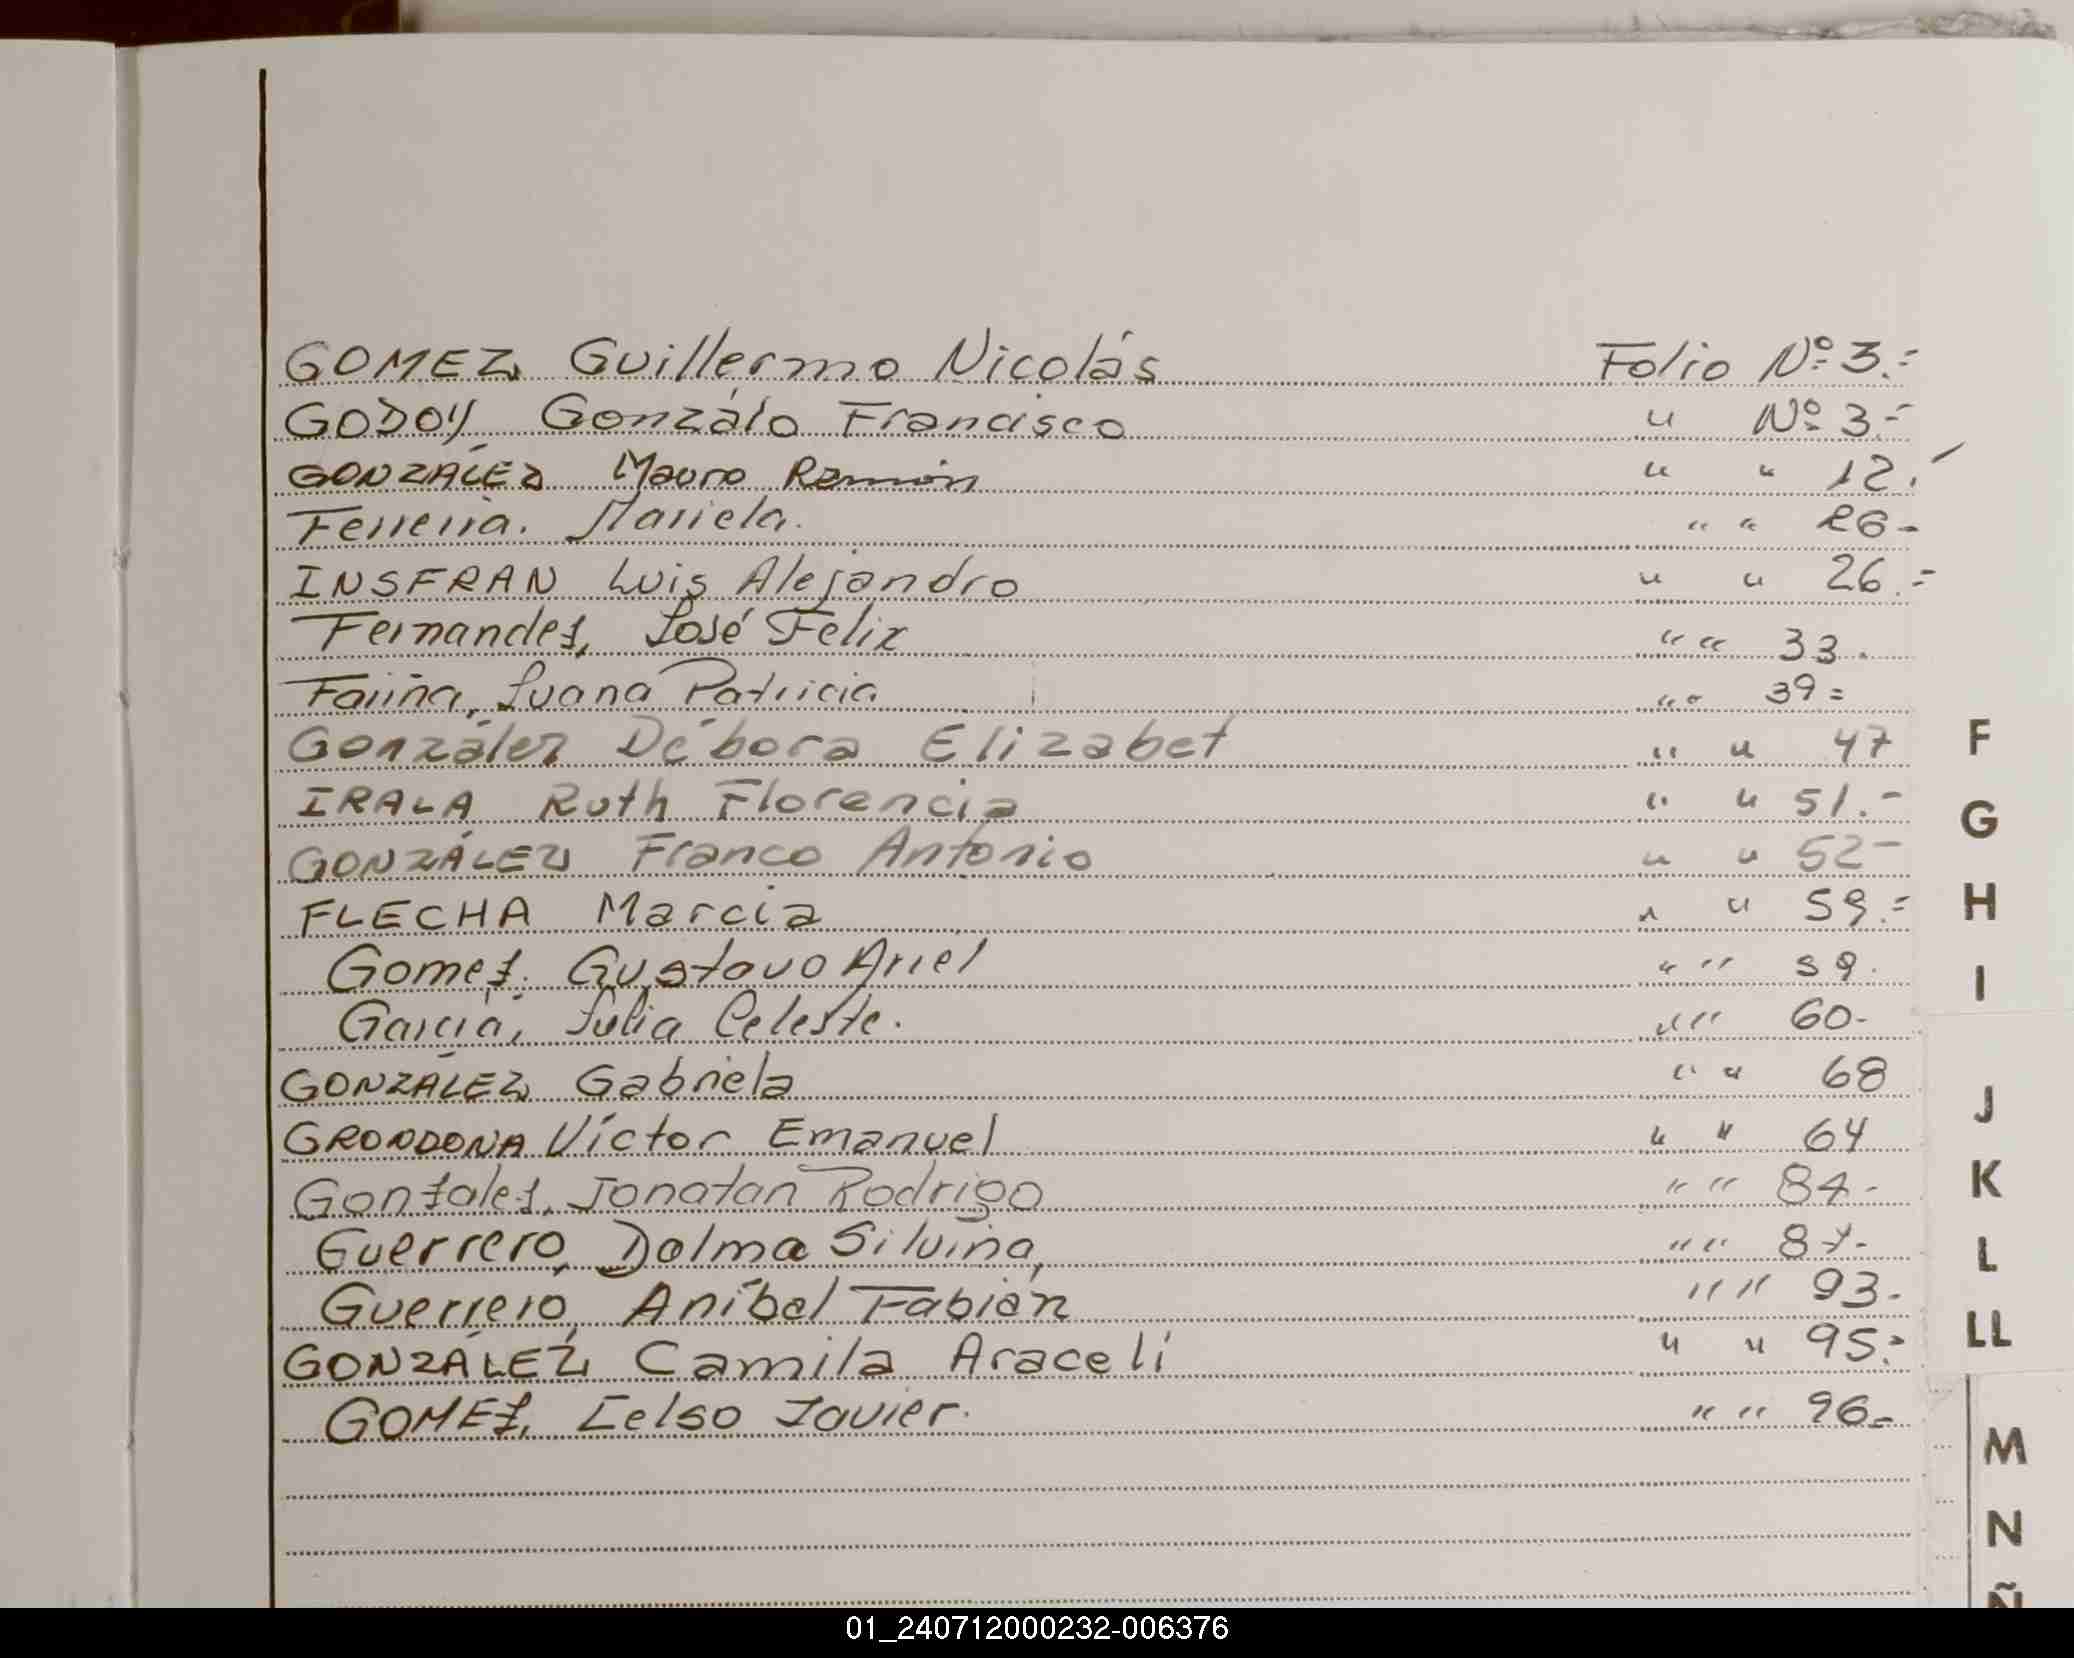 GOMEZ Guillermo Nicolás Folio Nº 3.=
GODOY Gonzálo Francisco " Nº 3.=
GONZÁLEZ Mauro Ramón " " 12.-
Ferreira. Mariela. " " 26-
INSFRAN Luis Alejandro " " 26.=
Fernandez, José Felix " " 33.
Fariña, Juana Patricia " " 39=
González Débora Elizabet " " 47
IRALA Ruth Florencia " " 51.-
GONZÁLEZ Franco Antonio " " 52-
FLECHA Marcia " " 59.=
Gomez. Gustavo Ariel " " 59.
Garcia, Julia Celeste. " " 60-
GONZÁLEZ Gabriela " " 68
GRONDONA Víctor Emanuel " " 64
Gonzalez, Jonatan Rodrigo " " 84-
Guerrero, Dalma Silvina, " " 87-
Guerrero, Aníbal Fabián " " 93-
GONZÁLEZ Camila Araceli " " 95.=
GOMEZ, Celso Javier. " " 96-
F
G
H
I
J
K
L
LL
M
N
Ñ
01_240712000232-006376